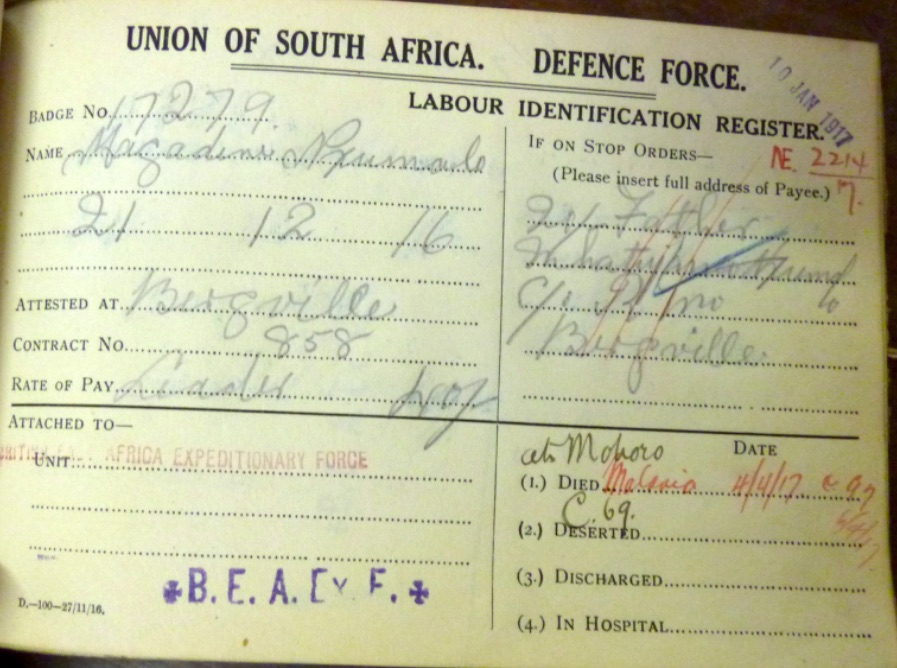 UNION OF SOUTH AFRICA. DEFENCE FORCE.
10 JAN 1917
LABOUR IDENTIFICATION REGISTER.
BADGE No. 17279.
NAME
21 12 16
ATTESTED AT Bergville
CONTRACT No. 858
RATE OF PAY Leader 40/
IF ON STOP ORDERS—
NE. 2214
(Please insert full address of Payee.) 17.
Father
c/o
Bergville
ATTACHED TO—
UNIT
AFRICA EXPEDITIONARY FORCE
B. E. A. Ex. F.
D.—100—27/11/16.
at Mohoro DATE
(1.) DIED Malaria 4/4/17
C. 69.
(2.) DESERTED
(3.) DISCHARGED
(4.) IN HOSPITAL